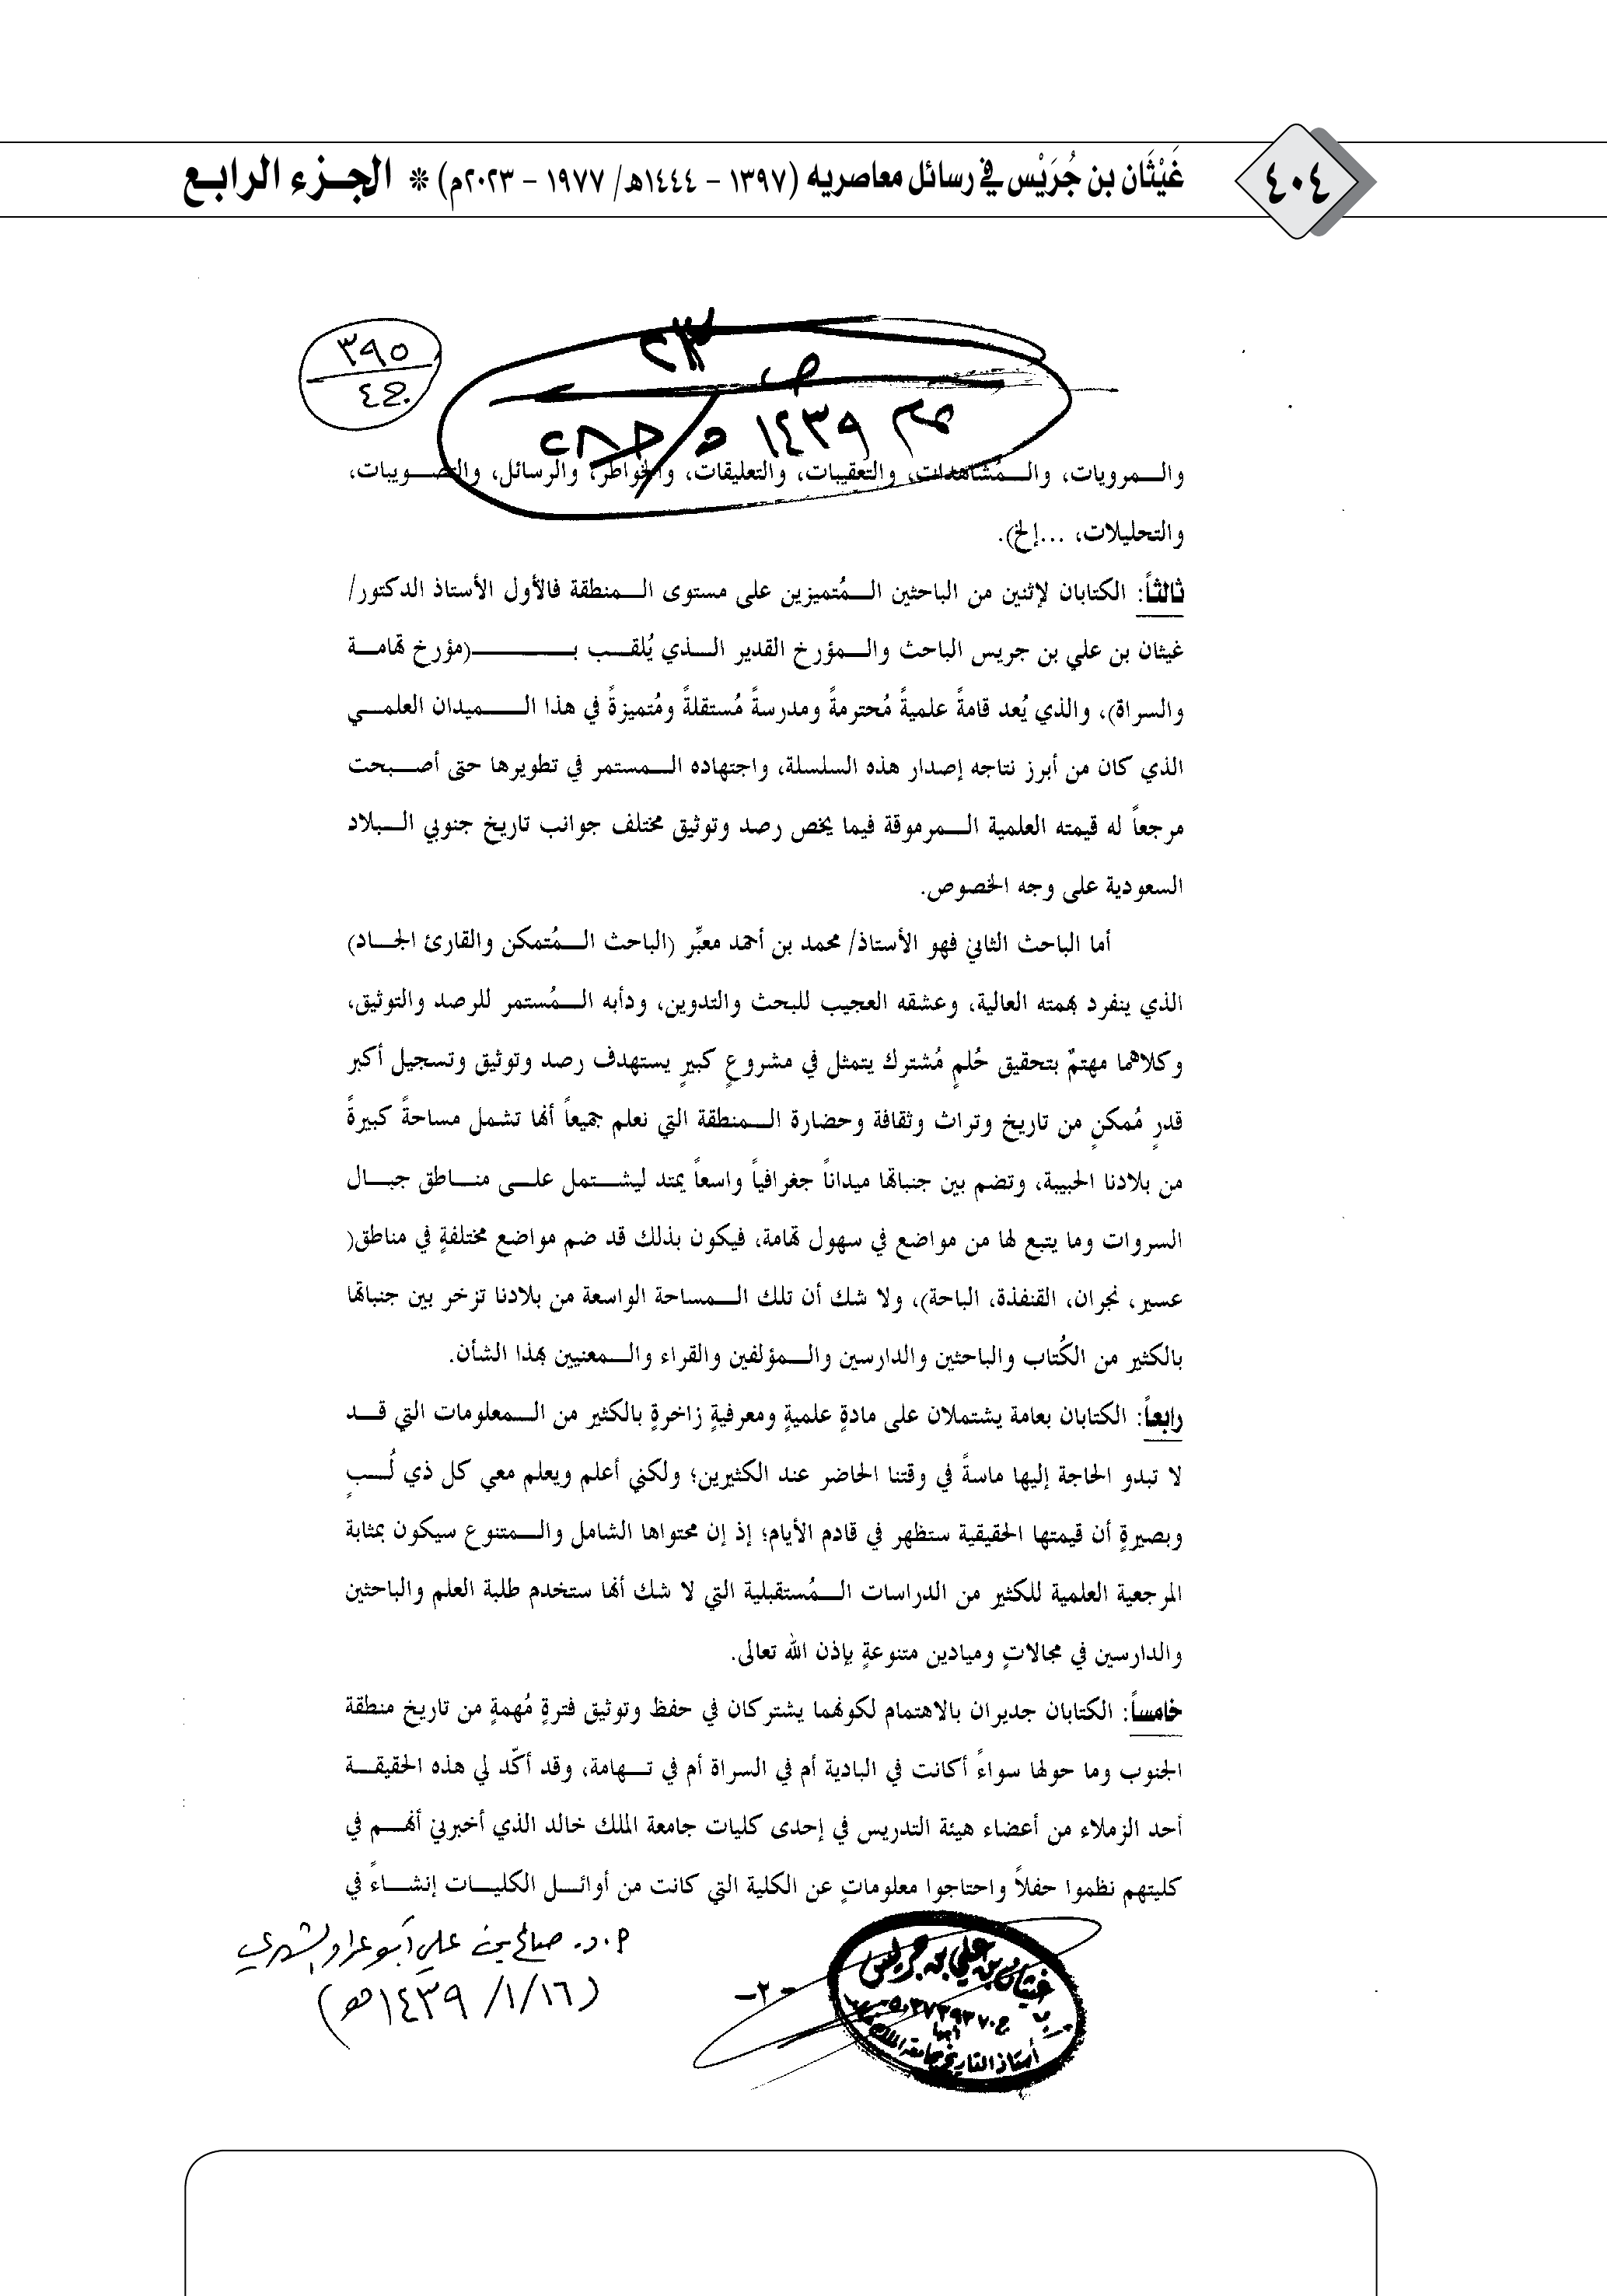 ٤٠٤
غَيْثَان بن جُرَيْس في رسائل معاصريه (١٣٩٧ - ١٤٤٤هـ/ ١٩٧٧ - ٢٠٢٣م) * الجزء الرابع
٣٩٥
ص
١٤٣٩
والمرويات، والمُشاهدات، والتعقيبات، والتعليقات، والخواطر، والرسائل، والتصويبات،
والتحليلات، ...إلخ).
ثالثاً: الكتابان لإثنين من الباحثين المُتميزين على مستوى المنطقة فالأول الأستاذ الدكتور/
غيثان بن علي بن جريس الباحث والمؤرخ القدير الذي يُلقب بـ(مؤرخ تهامة
والسراة)، والذي يُعد قامةً علميةً مُحترمةً ومدرسةً مُستقلةً ومُتميزةً في هذا الميدان العلمي
الذي كان من أبرز نتاجه إصدار هذه السلسلة، واجتهاده المستمر في تطويرها حتى أصبحت
مرجعاً له قيمته العلمية المرموقة فيما يخص رصد وتوثيق مختلف جوانب تاريخ جنوبي البلاد
السعودية على وجه الخصوص.
أما الباحث الثاني فهو الأستاذ/ محمد بن أحمد معبِّر (الباحث المُتمكن والقارئ الجاد)
الذي ينفرد بهمته العالية، وعشقه العجيب للبحث والتدوين، ودأبه المُستمر للرصد والتوثيق،
وكلاهما مهتمٌ بتحقيق حُلمٍ مُشترك يتمثل في مشروعٍ كبيرٍ يستهدف رصد وتوثيق وتسجيل أكبر
قدرٍ مُمكنٍ من تاريخ وتراث وثقافة وحضارة المنطقة التي نعلم جميعاً أنها تشمل مساحةً كبيرةً
من بلادنا الحبيبة، وتضم بين جنباتها ميداناً جغرافياً واسعاً يمتد ليشتمل على مناطق جبال
السروات وما يتبع لها من مواضع في سهول تهامة، فيكون بذلك قد ضم مواضع مختلفةٍ في مناطق(
عسير، نجران، القنفذة، الباحة)، ولا شك أن تلك المساحة الواسعة من بلادنا تزخر بين جنباتها
بالكثير من الكُتاب والباحثين والدارسين والمؤلفين والقراء والمعنيين بهذا الشأن.
رابعاً: الكتابان بعامة يشتملان على مادةٍ علميةٍ ومعرفيةٍ زاخرةٍ بالكثير من المعلومات التي قد
لا تبدو الحاجة إليها ماسةً في وقتنا الحاضر عند الكثيرين؛ ولكني أعلم ويعلم معي كل ذي لُبٍ
وبصيرةٍ أن قيمتها الحقيقية ستظهر في قادم الأيام؛ إذ إن محتواها الشامل والمتنوع سيكون بمثابة
المرجعية العلمية للكثير من الدراسات المُستقبلية التي لا شك أنها ستخدم طلبة العلم والباحثين
والدارسين في مجالاتٍ وميادين متنوعةٍ بإذن الله تعالى.
خامساً: الكتابان جديران بالاهتمام لكونهما يشتركان في حفظ وتوثيق فترةٍ مُهمةٍ من تاريخ منطقة
الجنوب وما حولها سواءً أكانت في البادية أم في السراة أم في تهامة، وقد أكّد لي هذه الحقيقة
أحد الزملاء من أعضاء هيئة التدريس في إحدى كليات جامعة الملك خالد الذي أخبرني أنهم في
كليتهم نظموا حفلاً واحتاجوا معلوماتٍ عن الكلية التي كانت من أوائل الكليات إنشاءً في
أ.د. صالح بن علي أبو عراد الشهري
(١٤٣٩/١/١٦هـ)
-٢-
غيثان بن علي بن جريس
أبها
أستاذ التاريخ بجامعة الملك خالد